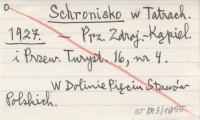 Schronisko w Tatrach.
1927. — Prz. Zdroj.-Kąpiel.
i Przew. Turyst. 16, nr 4.
W Dolinie Pięciu Stawów
Polskich.